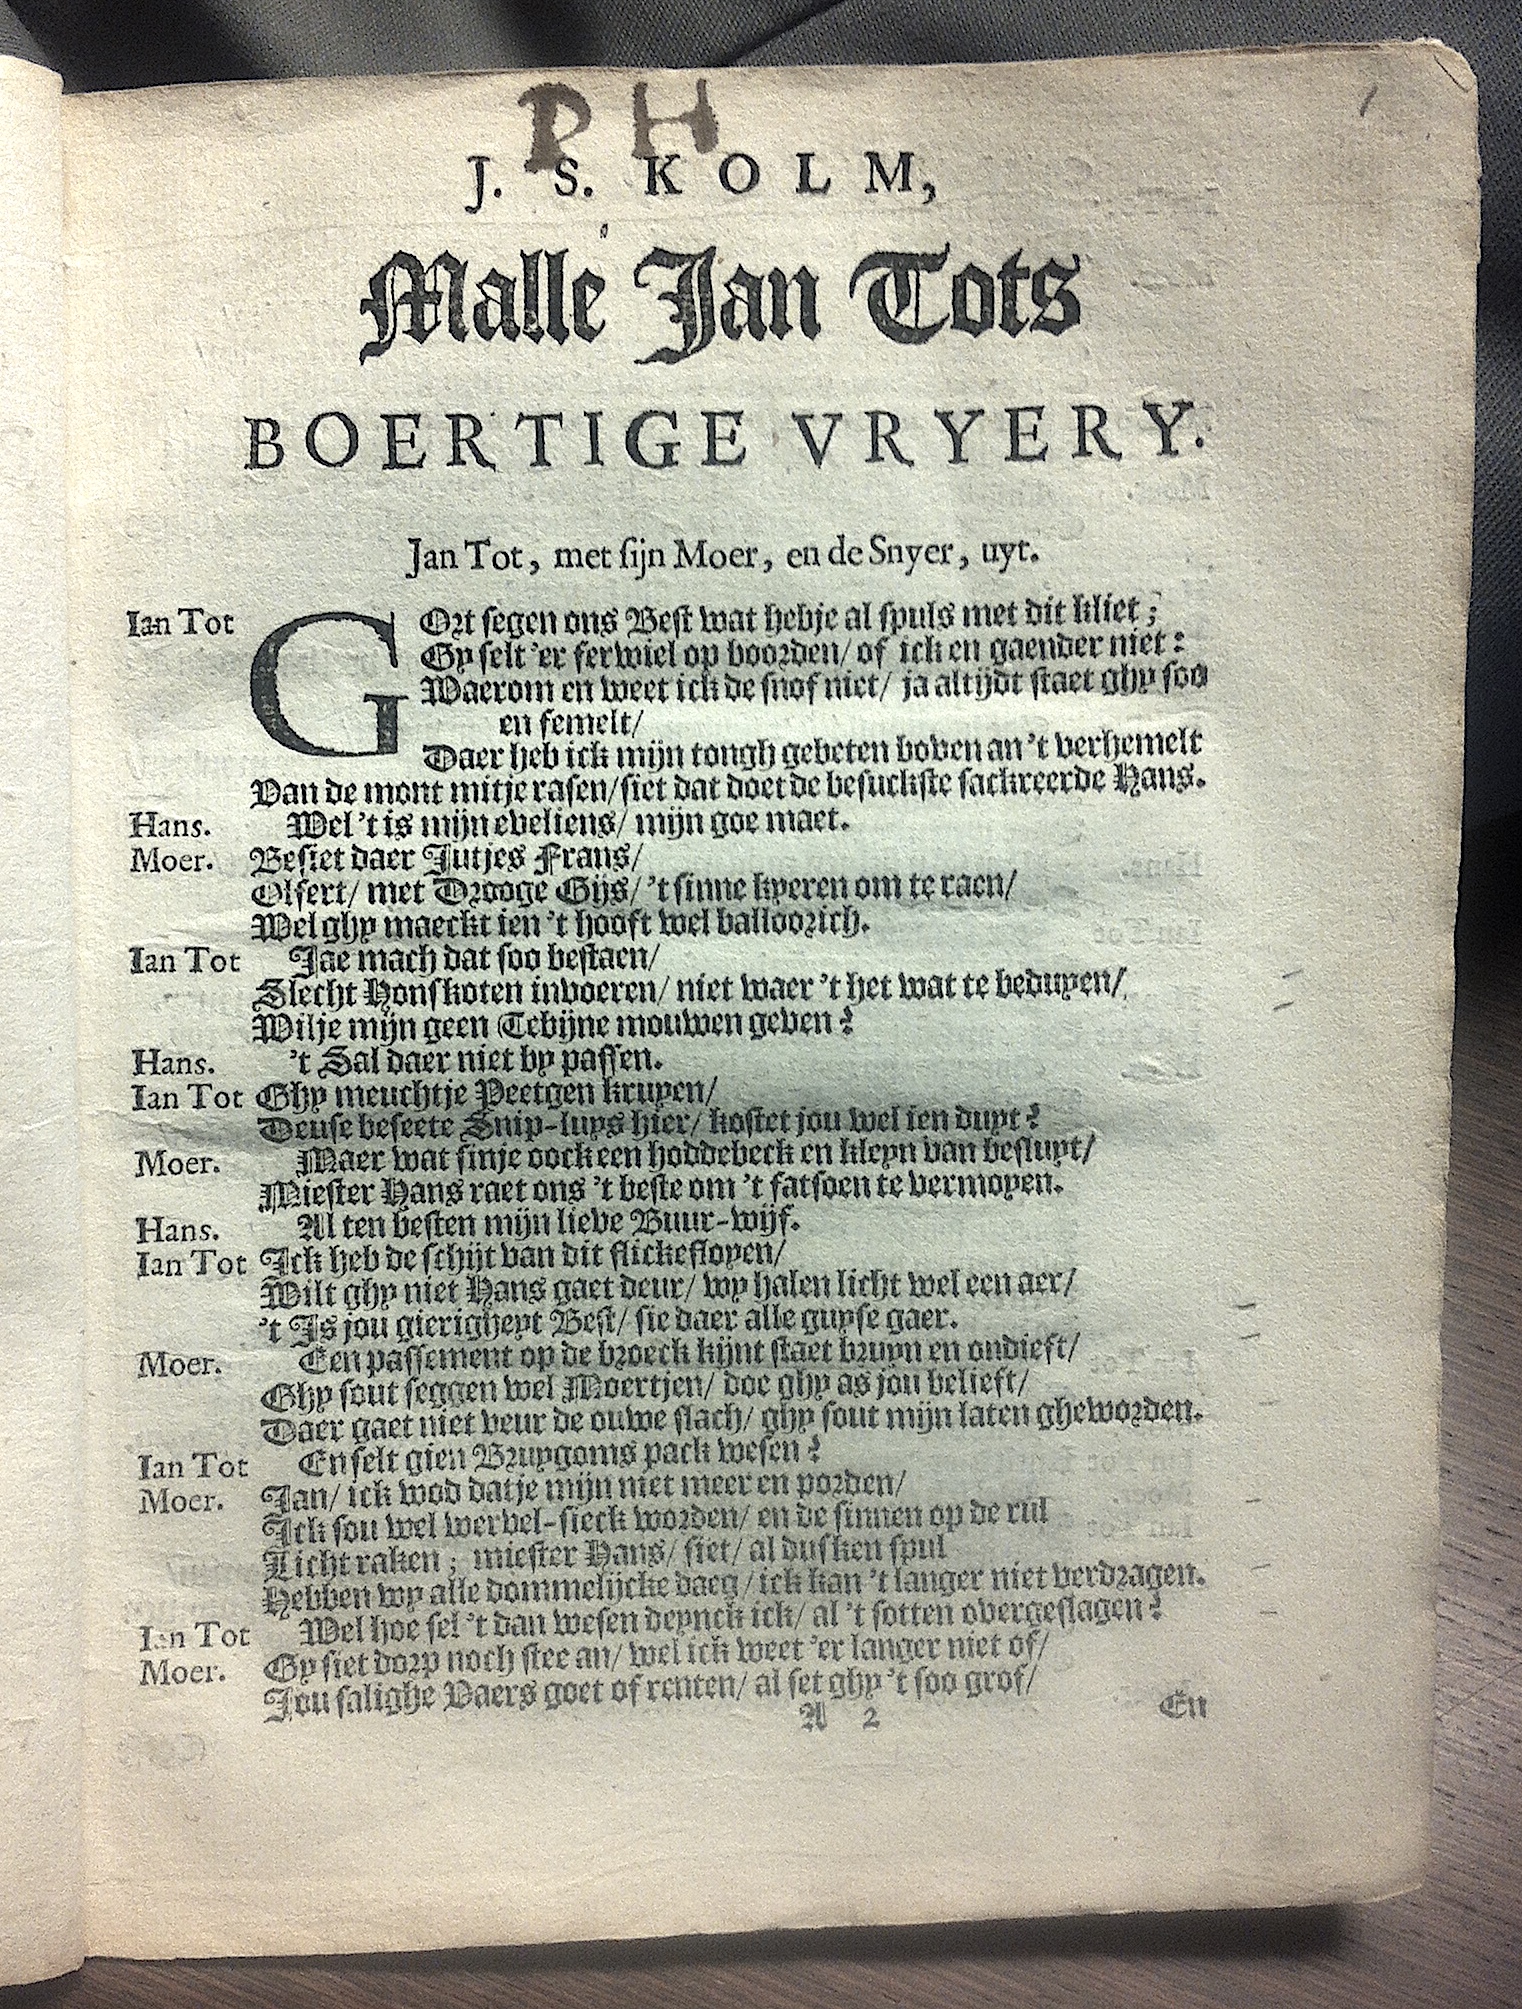 P H
J. S. KOLM,
Malle Jan Tots
BOERTIGE VRYERY.
Jan Tot, met sijn Moer, en de Snyer, uyt.
Ian Tot GOrt segen ons Best wat hebje al spuls met dit kliet;
Gy selt 'er ferwiel op boorden/ of ick en gaender niet:
Waerom en weet ick de snof niet/ ja altijdt staet ghy soo
en femelt/
Daer heb ick mijn tongh gebeten boven an 't verhemelt
Van de mont mitje rasen/ siet dat doet de besuckste sackreerde Hans.
Hans. Wel 't is mijn eveliens/ mijn goe maet.
Moer. Besiet daer Jutjes Frans/
Olfert/ met Drooge Gijs/ 't sinne kyeren om te raen/
Wel ghy maeckt ien 't hooft wel balloorich.
Ian Tot Jae mach dat soo bestaen/
Slecht Honskoten invoeren/ niet waer 't het wat te beduyen/
Wilje mijn geen Tebijne mouwen geven?
Hans. 't Sal daer niet by passen.
Ian Tot Ghy meuchtje Peetgen kruyen/
Deuse beseete Snip-luys hier/ kostet jou wel ien duyt?
Moer. Maer wat sinje oock een hoddebeck en kleyn van besluyt/
Miester Hans raet ons 't beste om 't fatsoen te vermoyen.
Hans. Al ten besten mijn lieve Buur-wijf.
Ian Tot Ick heb de schijt van dit flickefloyen/
Wilt ghy niet Hans gaet deur/ wy halen licht wel een aer/
't Is jou gierigheyt Best/ sie daer alle guyse gaer.
Moer. Een passement op de broeck kijnt staet bruyn en ondieft/
Ghy sout seggen wel Moertjen/ doe ghy as jou belieft/
Daer gaet niet veur de ouwe slach/ ghy sout mijn laten gheworden.
Ian Tot En selt gien Bruygoms pack wesen?
Moer. Jan/ ick wod datje mijn niet meer en porden/
Ick sou wel wervel-sieck worden/ en de sinnen op de rul
Licht raken; miester Hans/ siet/ al dusken spul
Hebben wy alle dommelijcke daeg/ ick kan 't langer niet verdragen.
Ian Tot Wel hoe sel 't dan wesen deynck ick/ al 't sotten overgeslagen?
Moer. Gy siet dorp noch stee an/ wel ick weet 'er langer niet of/
Jou salighe Vaers goet of renten/ al set ghy 't soo grof/
A 2 En